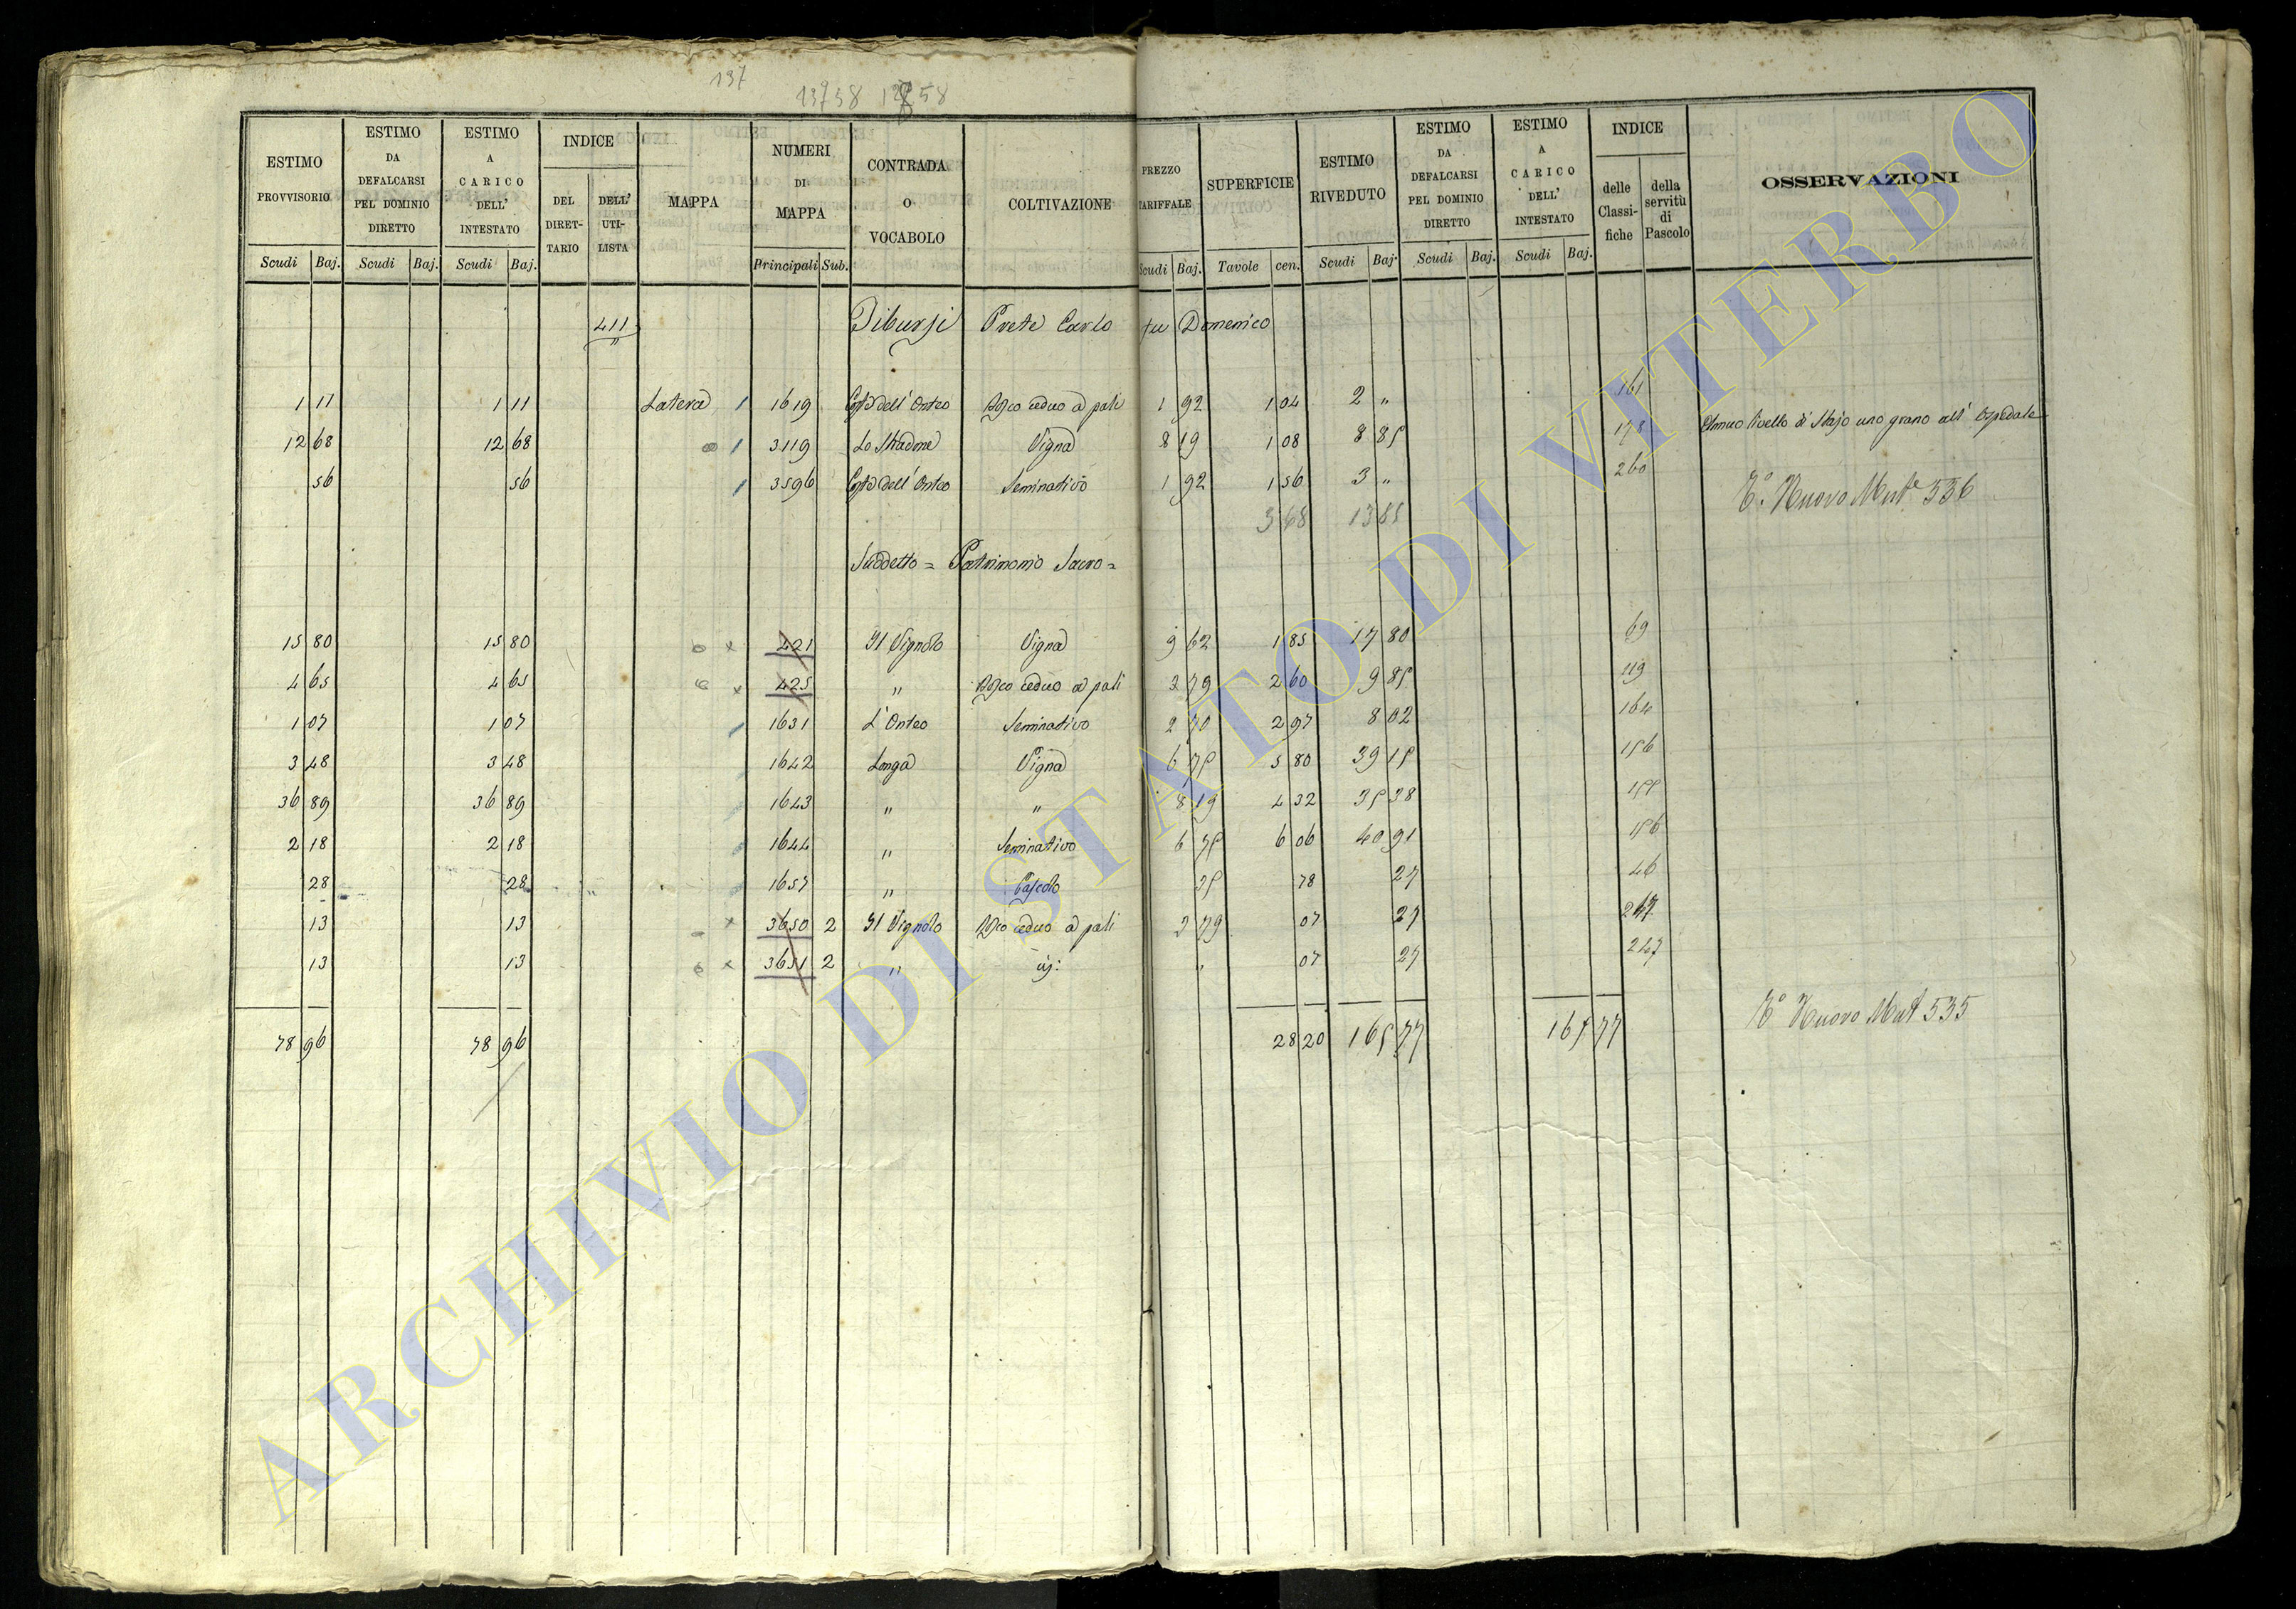 137
13758 12758
ESTIMO PROVVISORIO | ESTIMO DA DEFALCARSI PEL DOMINIO DIRETTO | ESTIMO A CARICO DELL' INTESTATO | INDICE | MAPPA | NUMERI DI MAPPA | CONTRADA O VOCABOLO | COLTIVAZIONE | PREZZO TARIFFALE | SUPERFICIE | ESTIMO RIVEDUTO | ESTIMO DA DEFALCARSI PEL DOMINIO DIRETTO | ESTIMO A CARICO DELL' INTESTATO | INDICE | OSSERVAZIONI
DEL DIRETTARIO | DELL' UTILISTA | delle Classifiche | della servitù di Pascolo
Scudi | Baj. | Scudi | Baj. | Scudi | Baj. | Principali | Sub. | Scudi | Baj. | Tavole | cen. | Scudi | Baj. | Scudi | Baj. | Scudi | Baj.
411 Tiburzi Prete Carlo fu Domenico
1 11 | 1 11 | Latera | 1 | 1619 | Costa dell' Onteo | Bosco ceduo a pali | 1 92 | 1 04 | 2 „ | 161
12 68 | 12 68 | 1 | 3119 | Lo Stradone | Vigna | 8 19 | 1 08 | 8 85 | 178 | Annuo livello di Stajo uno grano all' Ospedale
56 | 56 | 1 | 3596 | Costa dell' Onteo | Seminativo | 1 92 | 1 56 | 3 „ | 260 | T.º Nuovo Mut.e 536
3 68 | 13 85
Suddetto = Patrimonio Sacro =
15 80 | 15 80 | x | 421 | Il Vignolo | Vigna | 9 62 | 1 85 | 17 80 | 69
4 65 | 4 65 | x | 425 | „ | Bosco ceduo a pali | 3 79 | 2 60 | 9 85 | 119
1 07 | 1 07 | 1631 | L' Onteo | Seminativo | 2 70 | 2 97 | 8 02 | 164
3 48 | 3 48 | 1642 | Longa | Vigna | 6 75 | 5 80 | 39 15 | 156
36 89 | 36 89 | 1643 | „ | „ | 8 19 | 4 32 | 35 38 | 155
2 18 | 2 18 | 1644 | „ | Seminativo | 6 75 | 6 06 | 40 91 | 156
28 | 28 | 1657 | „ | Pascolo | 35 | 78 | 27 | 46
13 | 13 | x | 3650 | 2 | Il Vignolo | Bosco ceduo a pali | 3 79 | 07 | 27 | 247
13 | 13 | x | 3651 | 2 | „ | | „ | 07 | 27 | 247
T.º Nuovo Mut 535
78 96 | 78 96 | 28 20 | 165 77 | 165 77
ARCHIVIO DI STATO DI VITERBO